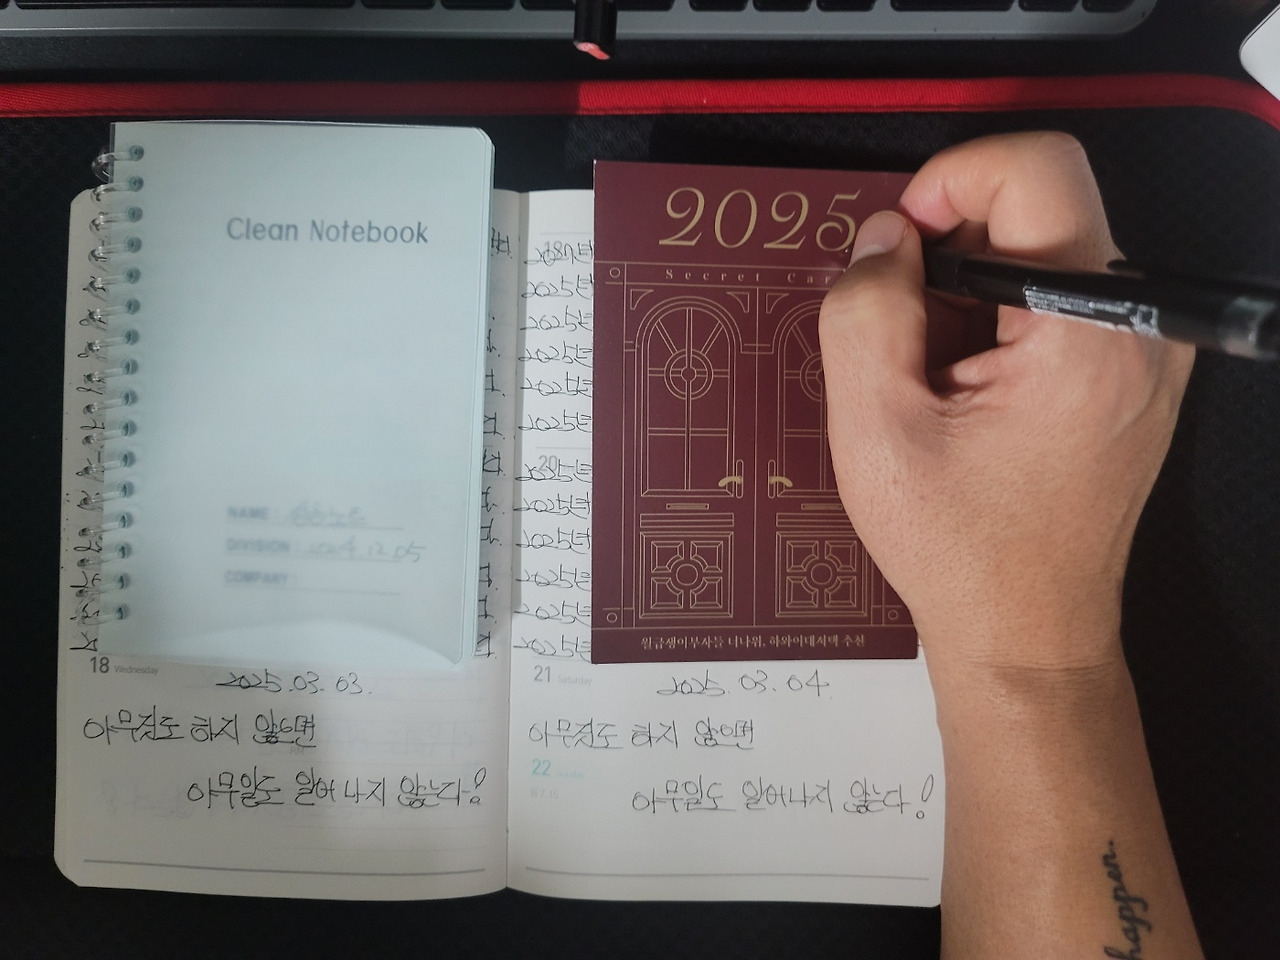 Clean Notebook
NAME :
DIVISION : 2024.12.05
COMPANY :
2025
Secret Car
월급쟁이부자들 너나위, 하와이대저택 추천
2025년
2025년
2025년
2025년
2025년
20
2025년
2025년
2025년
2025년
2025년
2025년
18 Wednesday
2025.03.03.
아무것도 하지 않으면
아무일도 일어나지 않는다!
21 Saturday
2025.03.04.
아무것도 하지 않으면
22 Sunday
아무일도 일어나지 않는다!
happen.